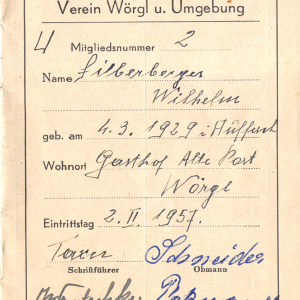 Verein Wörgl u. Umgebung
4 Mitgliedsnummer 2
Name Silberberger
Wilhelm
geb. am 4.3.1929 i. Auffach
Wohnort Gasthof Alte Post
Wörgl
Eintrittstag 2. II. 1957.
Schneider
Schriftführer Obmann